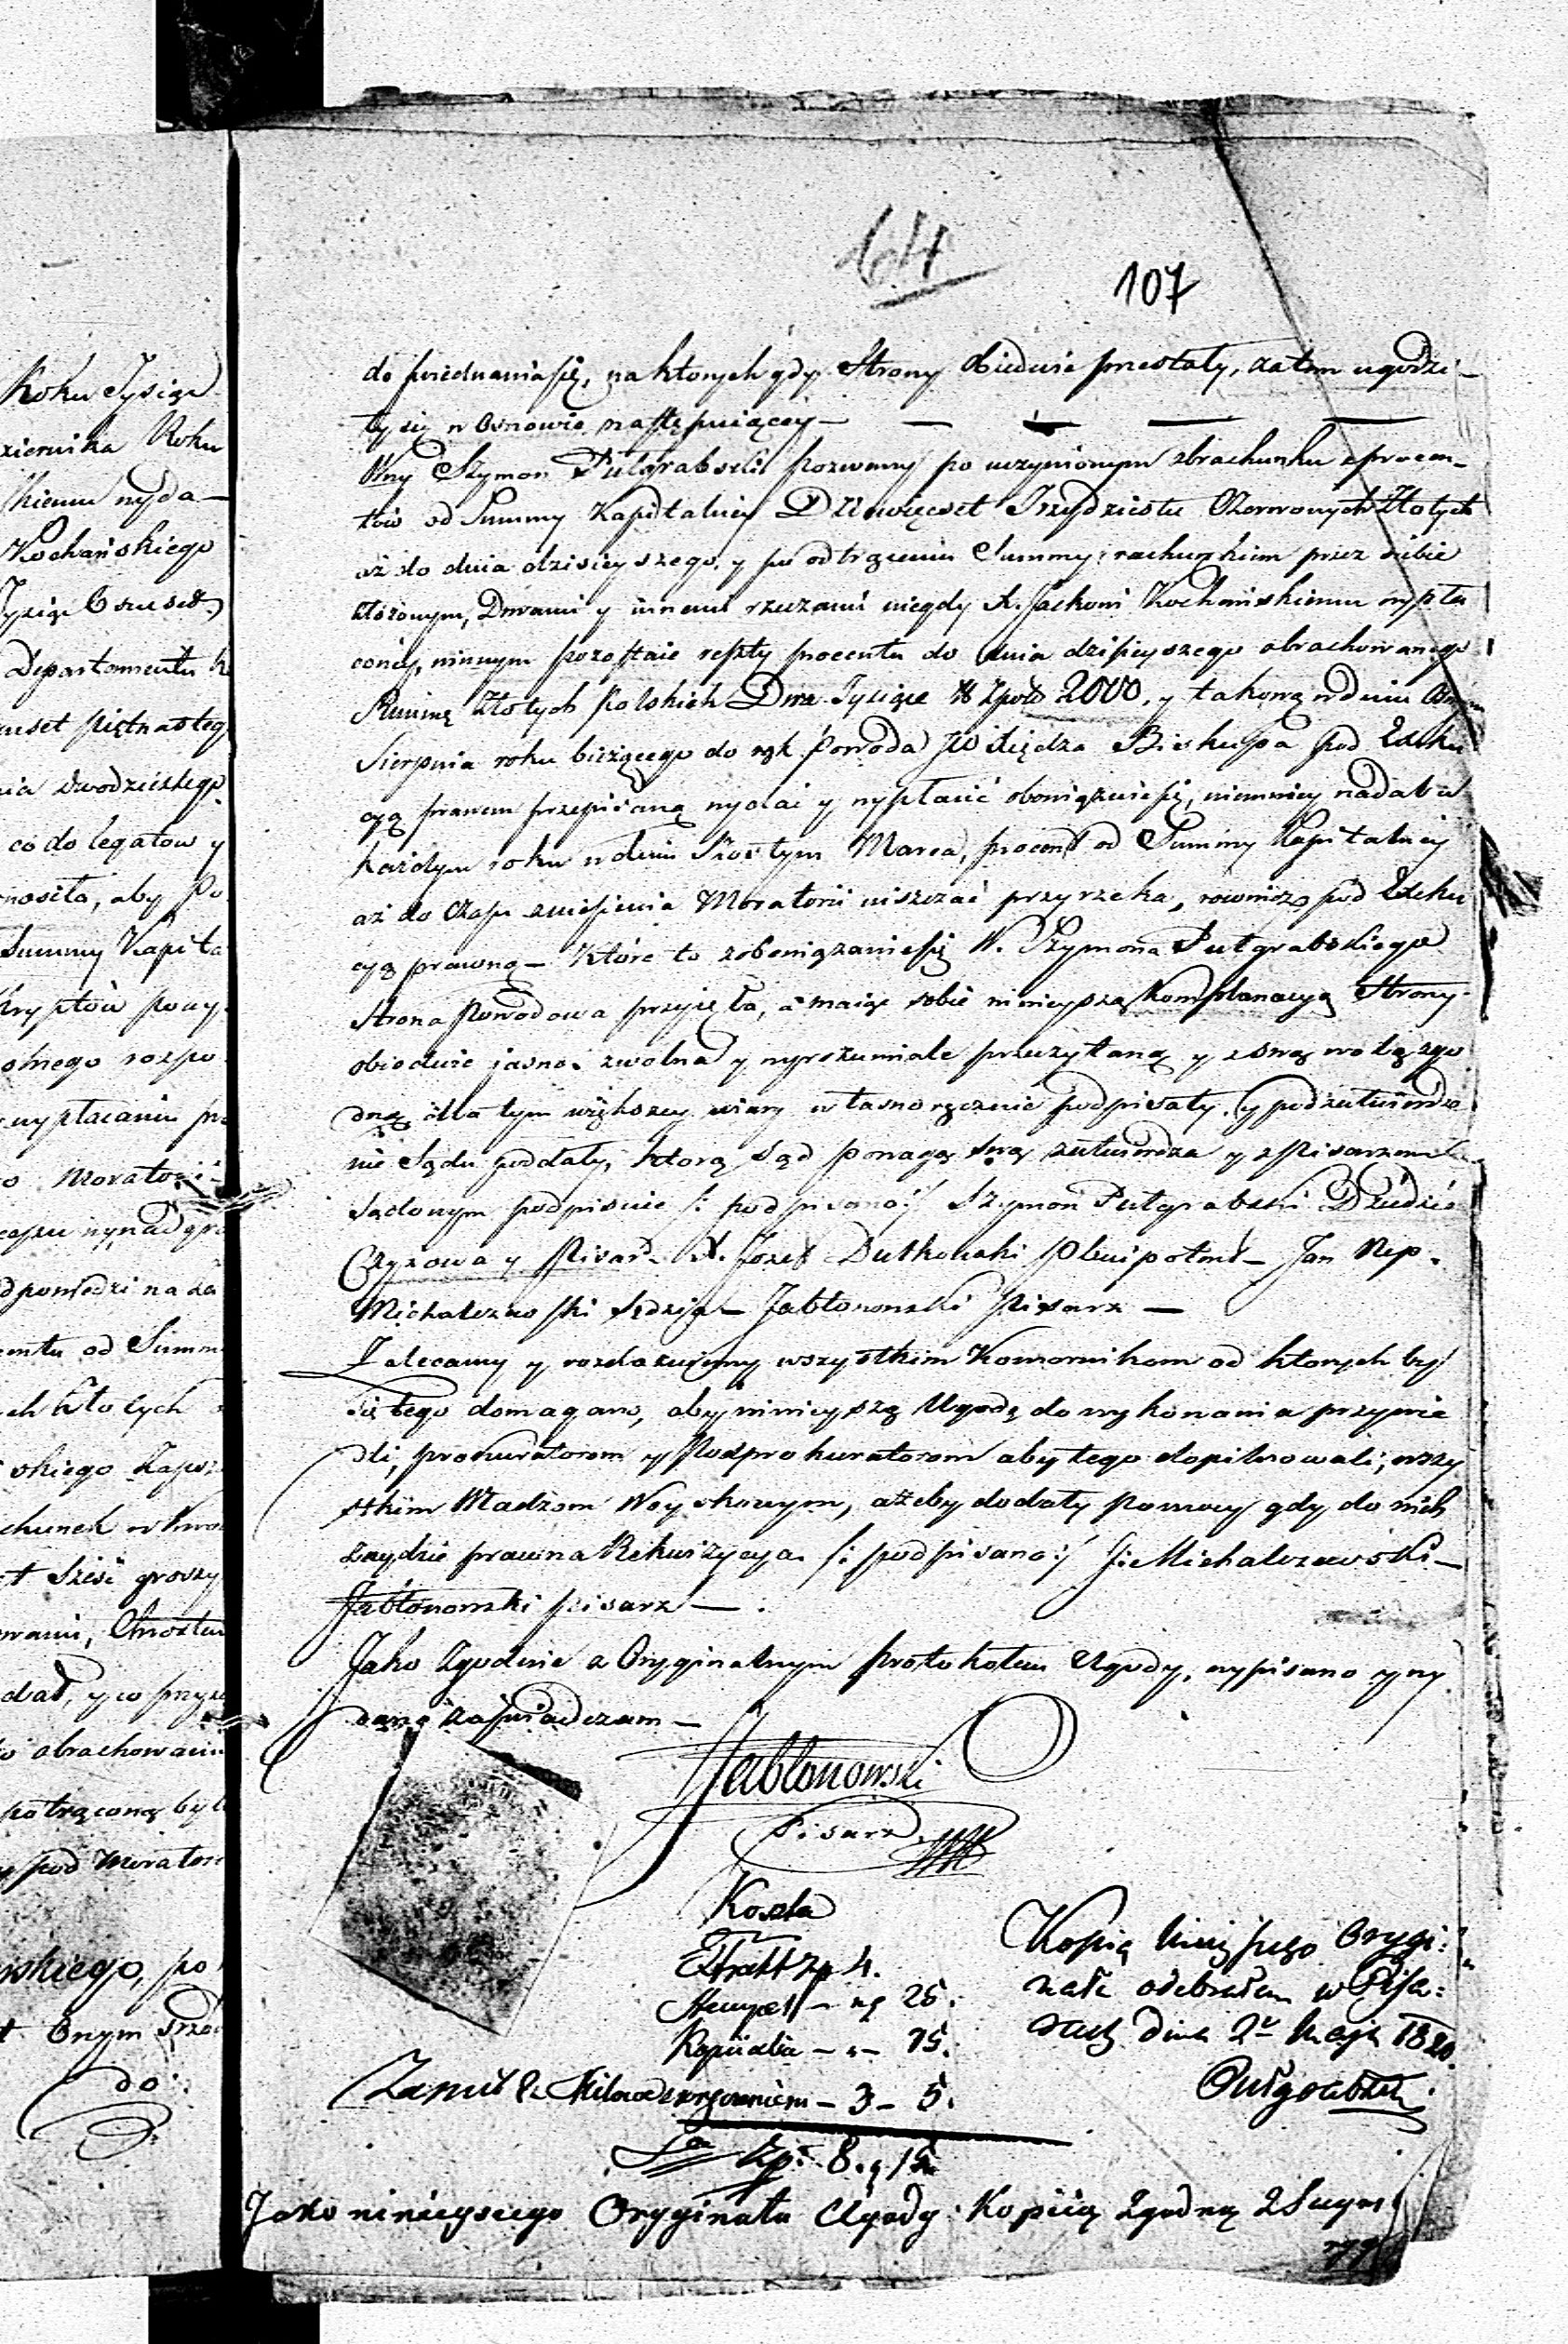 Roku Tysiąc
ziernika Roku
skiemu wyda—
Kochańskiego
Departamentu
set piętnasteg
nia dwudziestego
co do legatow y
nosiło, aby Po
Summy Kapita
kryptów powy
olnego rozpo
wypłacaniu pro
o Moratorii
dpowiedzi na
entu od Summ
ch Złotych
skiego
chunek
t sześć groszy
dał, y co przy
o obrachowaniu
potrąconą był
pod Morator
skiego, po
t Onym
do:
64
107
do poiednania się, na ktorych gdy Strony obiedwie przestały, zatem ugodzi—
ły się w Osnowie następuiącey—
Wny Szymon Pułgrabski pozwany po uczynionym obrachunku procen—
tów od Summy Kapitalney Dziewięćset Trzydziestu Czerwonych Złotych
aż do dnia dzisieyszego, y po odtrąceniu Summy rachunkiem przez siebie
złożonym, Drwami y innemi rzeczami niegdy X. Jackowi Kochańskiemu wypła
coney, winnym pozostaie reszty procentu do dnia dzisieyszego obrachowanego
Summę Złotych Polskich Dwa Tysiące Zpol 2000. y takową w dniu Osmym
Sierpnia roku bieżącego do rąk Powoda JW Xiędza Biskupa pod Exeku
cyą prawem przepisaną wydać y wypłacić obowiązuie się, niemniey nadal w
każdym roku w dniu Szostym Marca, procent od Summy Kapitalney
aż do czasu zniesienia Moratorii uiszczać przyrzeka, rownież pod Exeku
cyą prawną— Które to zobowiązanie się W. Szymona Pułgrabskiego
Strona Powodowa przyięła, a maiąc sobie ninieyszą Komplanacyą Strony
obiedwie jasno, zwolna y wyrozumiale przeczytaną y z swą wolą zgo
dną dla tym większey wiary własnoręcznie podpisały, y pod zatwierdze
nie Sądu poddały, którą Sąd powagą swą zatwierdza y z Pisarzem
Sądowym podpisuie /: podpisano:/ Szymon Pułgrabski Dziedzic
Czyzowa y Pisar. X. Józef Dutkowski Plenipotent— Jan Nep.
Michalczewski Sędzia— Jabłonowski Pisarz—
Zalecamy y rozkazuiemy wszystkim Komornikom od ktorych by
się tego domagano, aby ninieyszą Ugodę do wykonania przywie
dli, prokuratorom y Podprokuratorom aby tego dopilnowali, wszy
stkim Władzom Woyskowym, ażeby dodały pomocy gdy do nich
zaydzie prawna Rekwizycya /: podpisano:/ J: Michalczewski—
Jabłonowski pisarz—.
Jako zgodnie z Oryginalnym protokołem Ugody, wypisano y wy
daną zaświadczam—
Jabłonowski
Pisarz
Koszta
Extrakt Zp 4.
Stempel — — 25.
Kopiialia — „ — 15.
— 3 — 5.
Sa Zp. 8. g 15
Kopią ninieyszego Orygi:
nału odebrałem w Pisa:
rach dnia 2o Maja 1820.
Pułgrabski.
Jako ninieyszego Oryginału Ugody Kopiią Zgodną z Swym